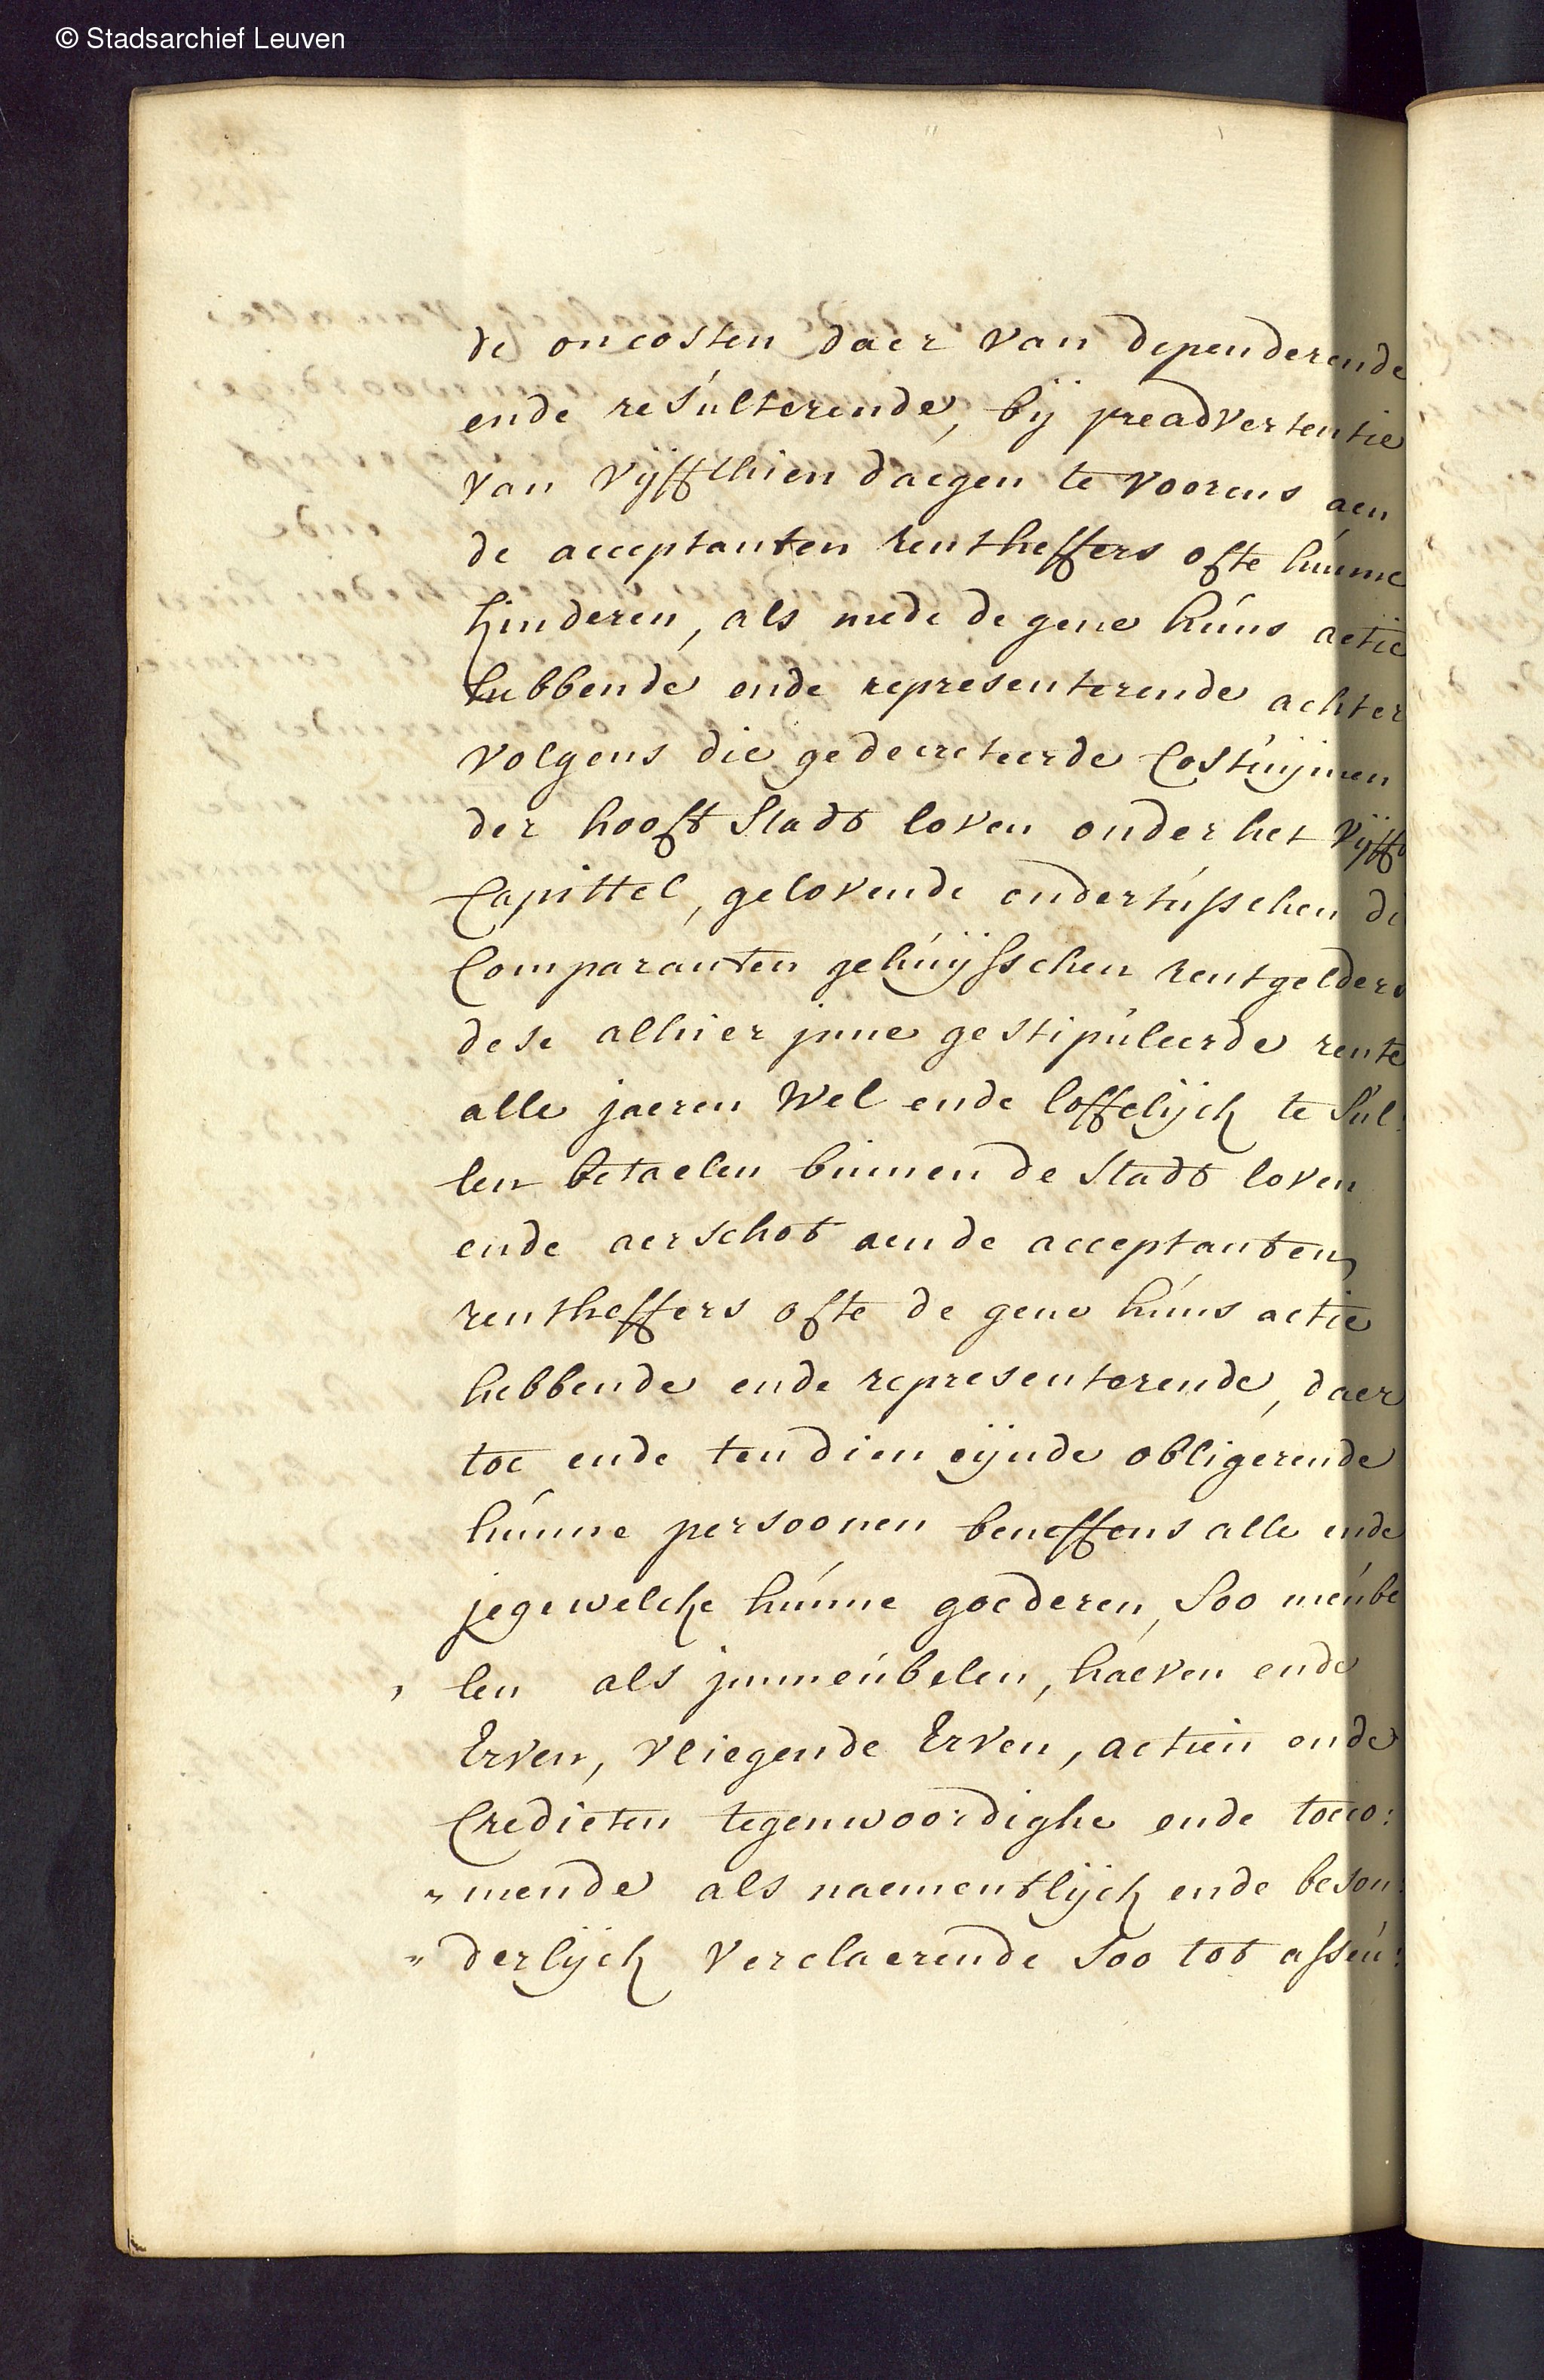 © Stadsarchief Leuven
de oncosten daer van dependerende
ende resulterende, bij preadvertentie
van vijffthien daegen te voorens aen
de acceptanten rentheffers ofte hunne
kinderen, als mede de gene huns actie
hebbende ende representerende achter
volgens die gedecreteerde Costuijmen
der hooft Stadt loven onder het vijffde
Capittel, gelovende ondertusschen de
Comparanten gehuijsschen rentgelders
dese alhier jnne gestipuleerde rente
alle jaeren wel ende loffelijck te sul:
len betaelen binnen de Stadt loven
ende aerschot aen de acceptanten
rentheffers ofte de gene huns actie
hebbende ende representerende, daer
toe ende ten dien eijnde obligerende
hunne persoonen beneffens alle ende
jegewelcke hunne goederen, Soo meube
len als jmmeubelen, haeven ende
Erven, vliegende Erven, actien ende
Credieten tegenwoordighe ende toeco:
„ mende als naementlijck ende beson:
„ derlijck verclaerende Soo tot asseu: